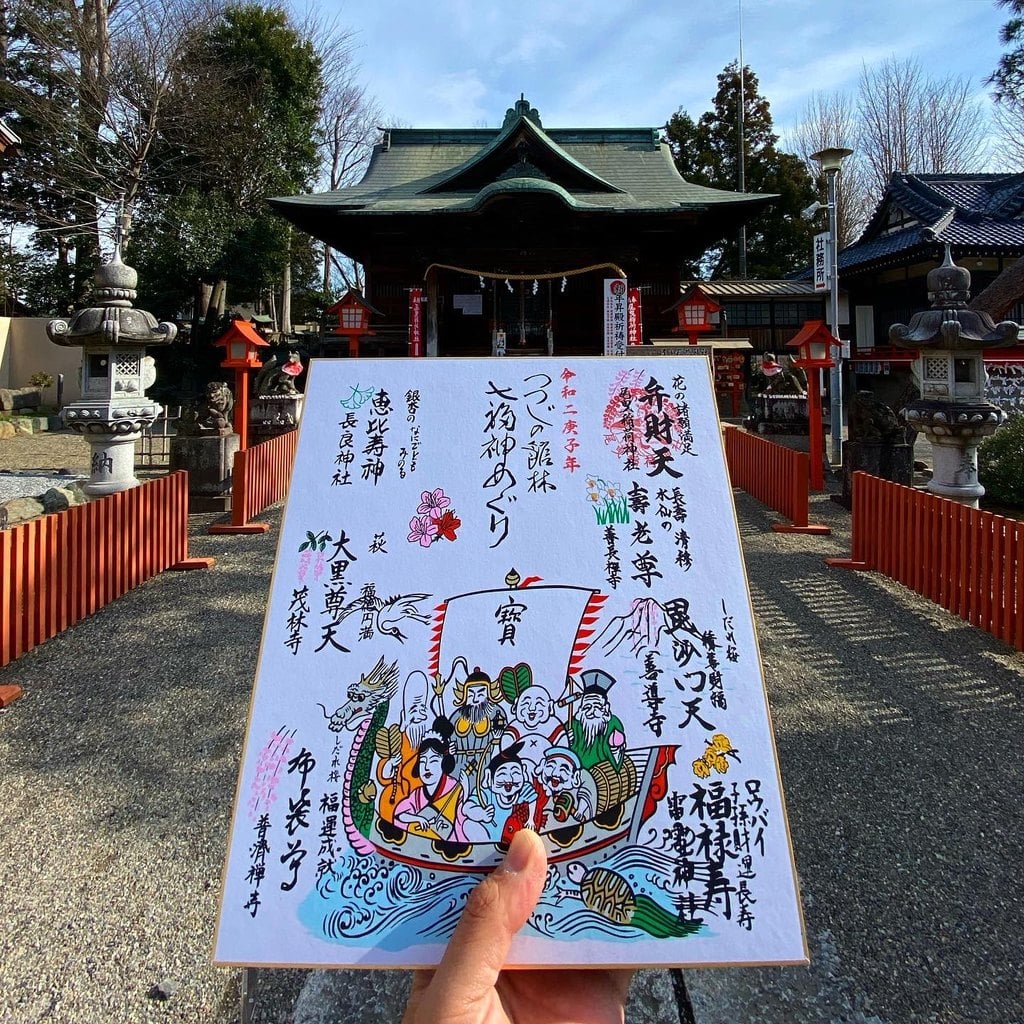 花の諸願満足
弁財天
尾曳稲荷神社
令和二庚子年
つつじの館林
七福神めぐり
銀杏の なにごともみのる
恵比寿神
長良神社
長寿 清穆
水仙の
壽老尊
善長禅寺
萩
福徳円満
大黒尊天
茂林寺
寶
しだれ桜
毘沙門天
善導寺
しだれ桜
福運成就
布袋尊
普濟禅寺
ロウバイ
子孫 財運 長寿
福禄寿
雷電神社
社務所
昇殿祈祷受付
納